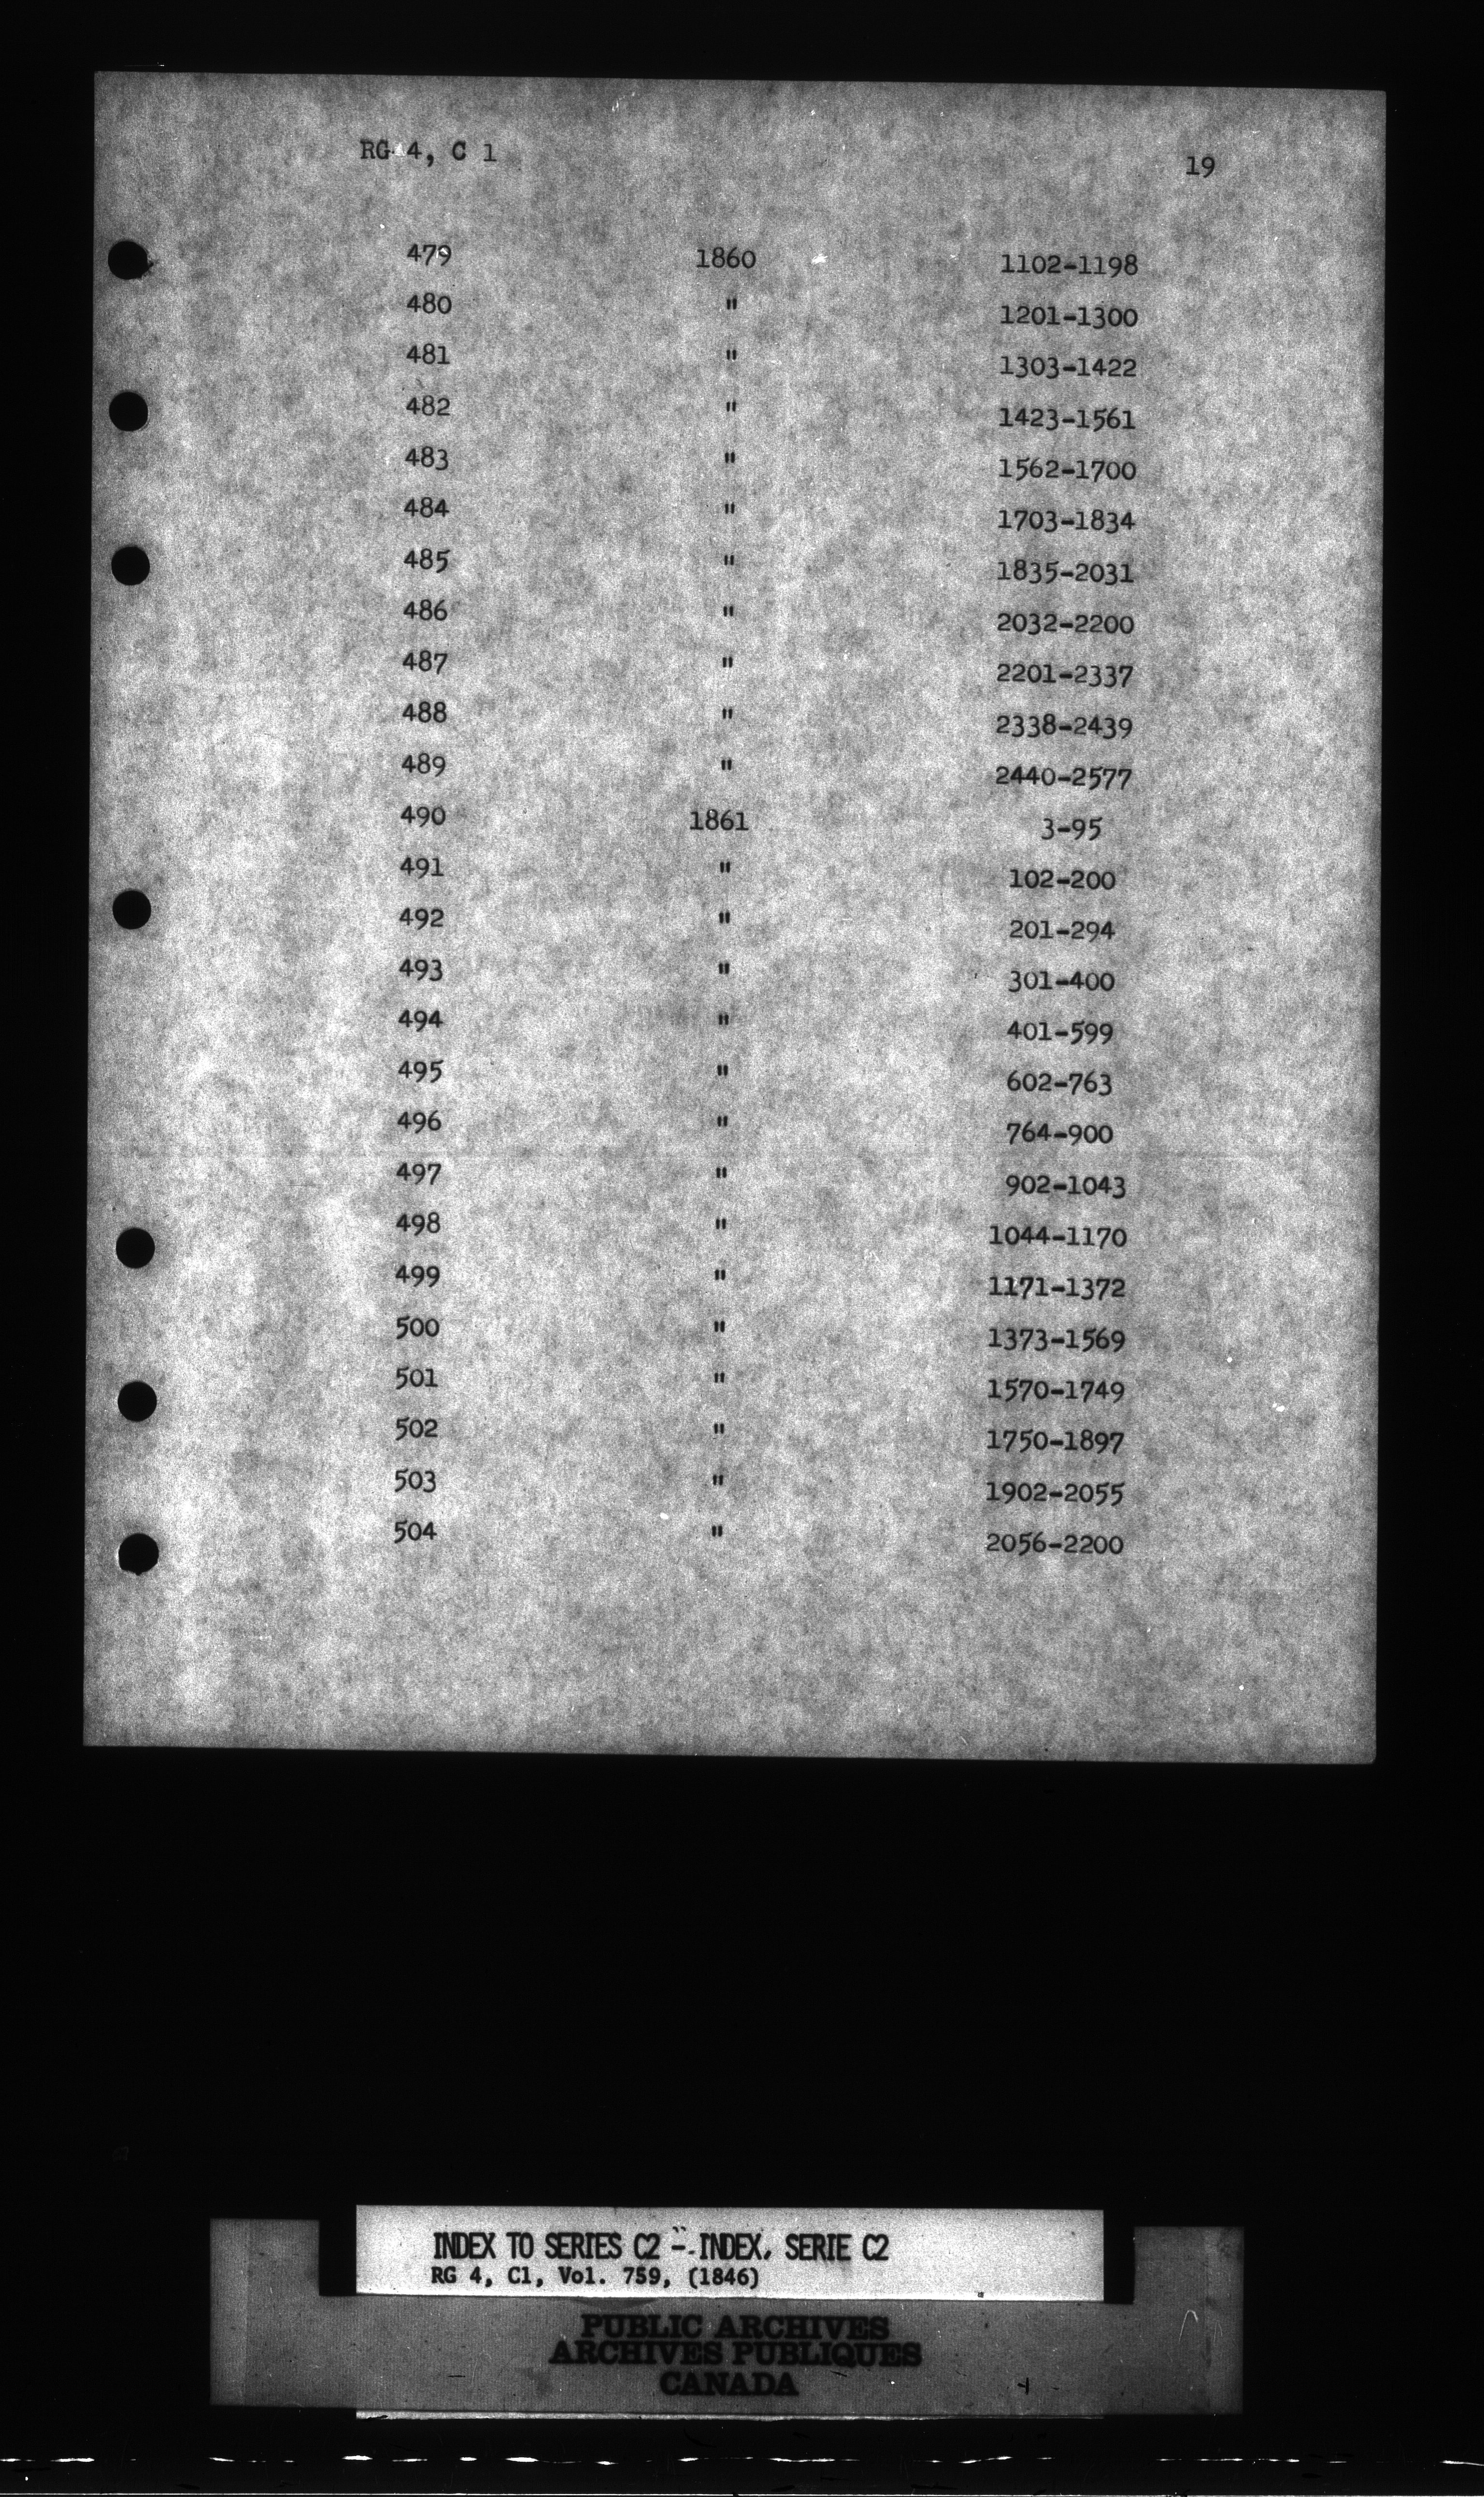 RG 4, C 1 19
479 1860 1102-1198
480 " 1201-1300
481 " 1303-1422
482 " 1423-1561
483 " 1562-1700
484 " 1703-1834
485 " 1835-2031
486 " 2032-2200
487 " 2201-2337
488 " 2338-2439
489 " 2440-2577
490 1861 3-95
491 " 102-200
492 " 201-294
493 " 301-400
494 " 401-599
495 " 602-763
496 " 764-900
497 " 902-1043
498 " 1044-1170
499 " 1171-1372
500 " 1373-1569
501 " 1570-1749
502 " 1750-1897
503 " 1902-2055
504 " 2056-2200
INDEX TO SERIES C2 - INDEX, SERIE C2
RG 4, C1, Vol. 759, (1846)
PUBLIC ARCHIVES
ARCHIVES PUBLIQUES
CANADA